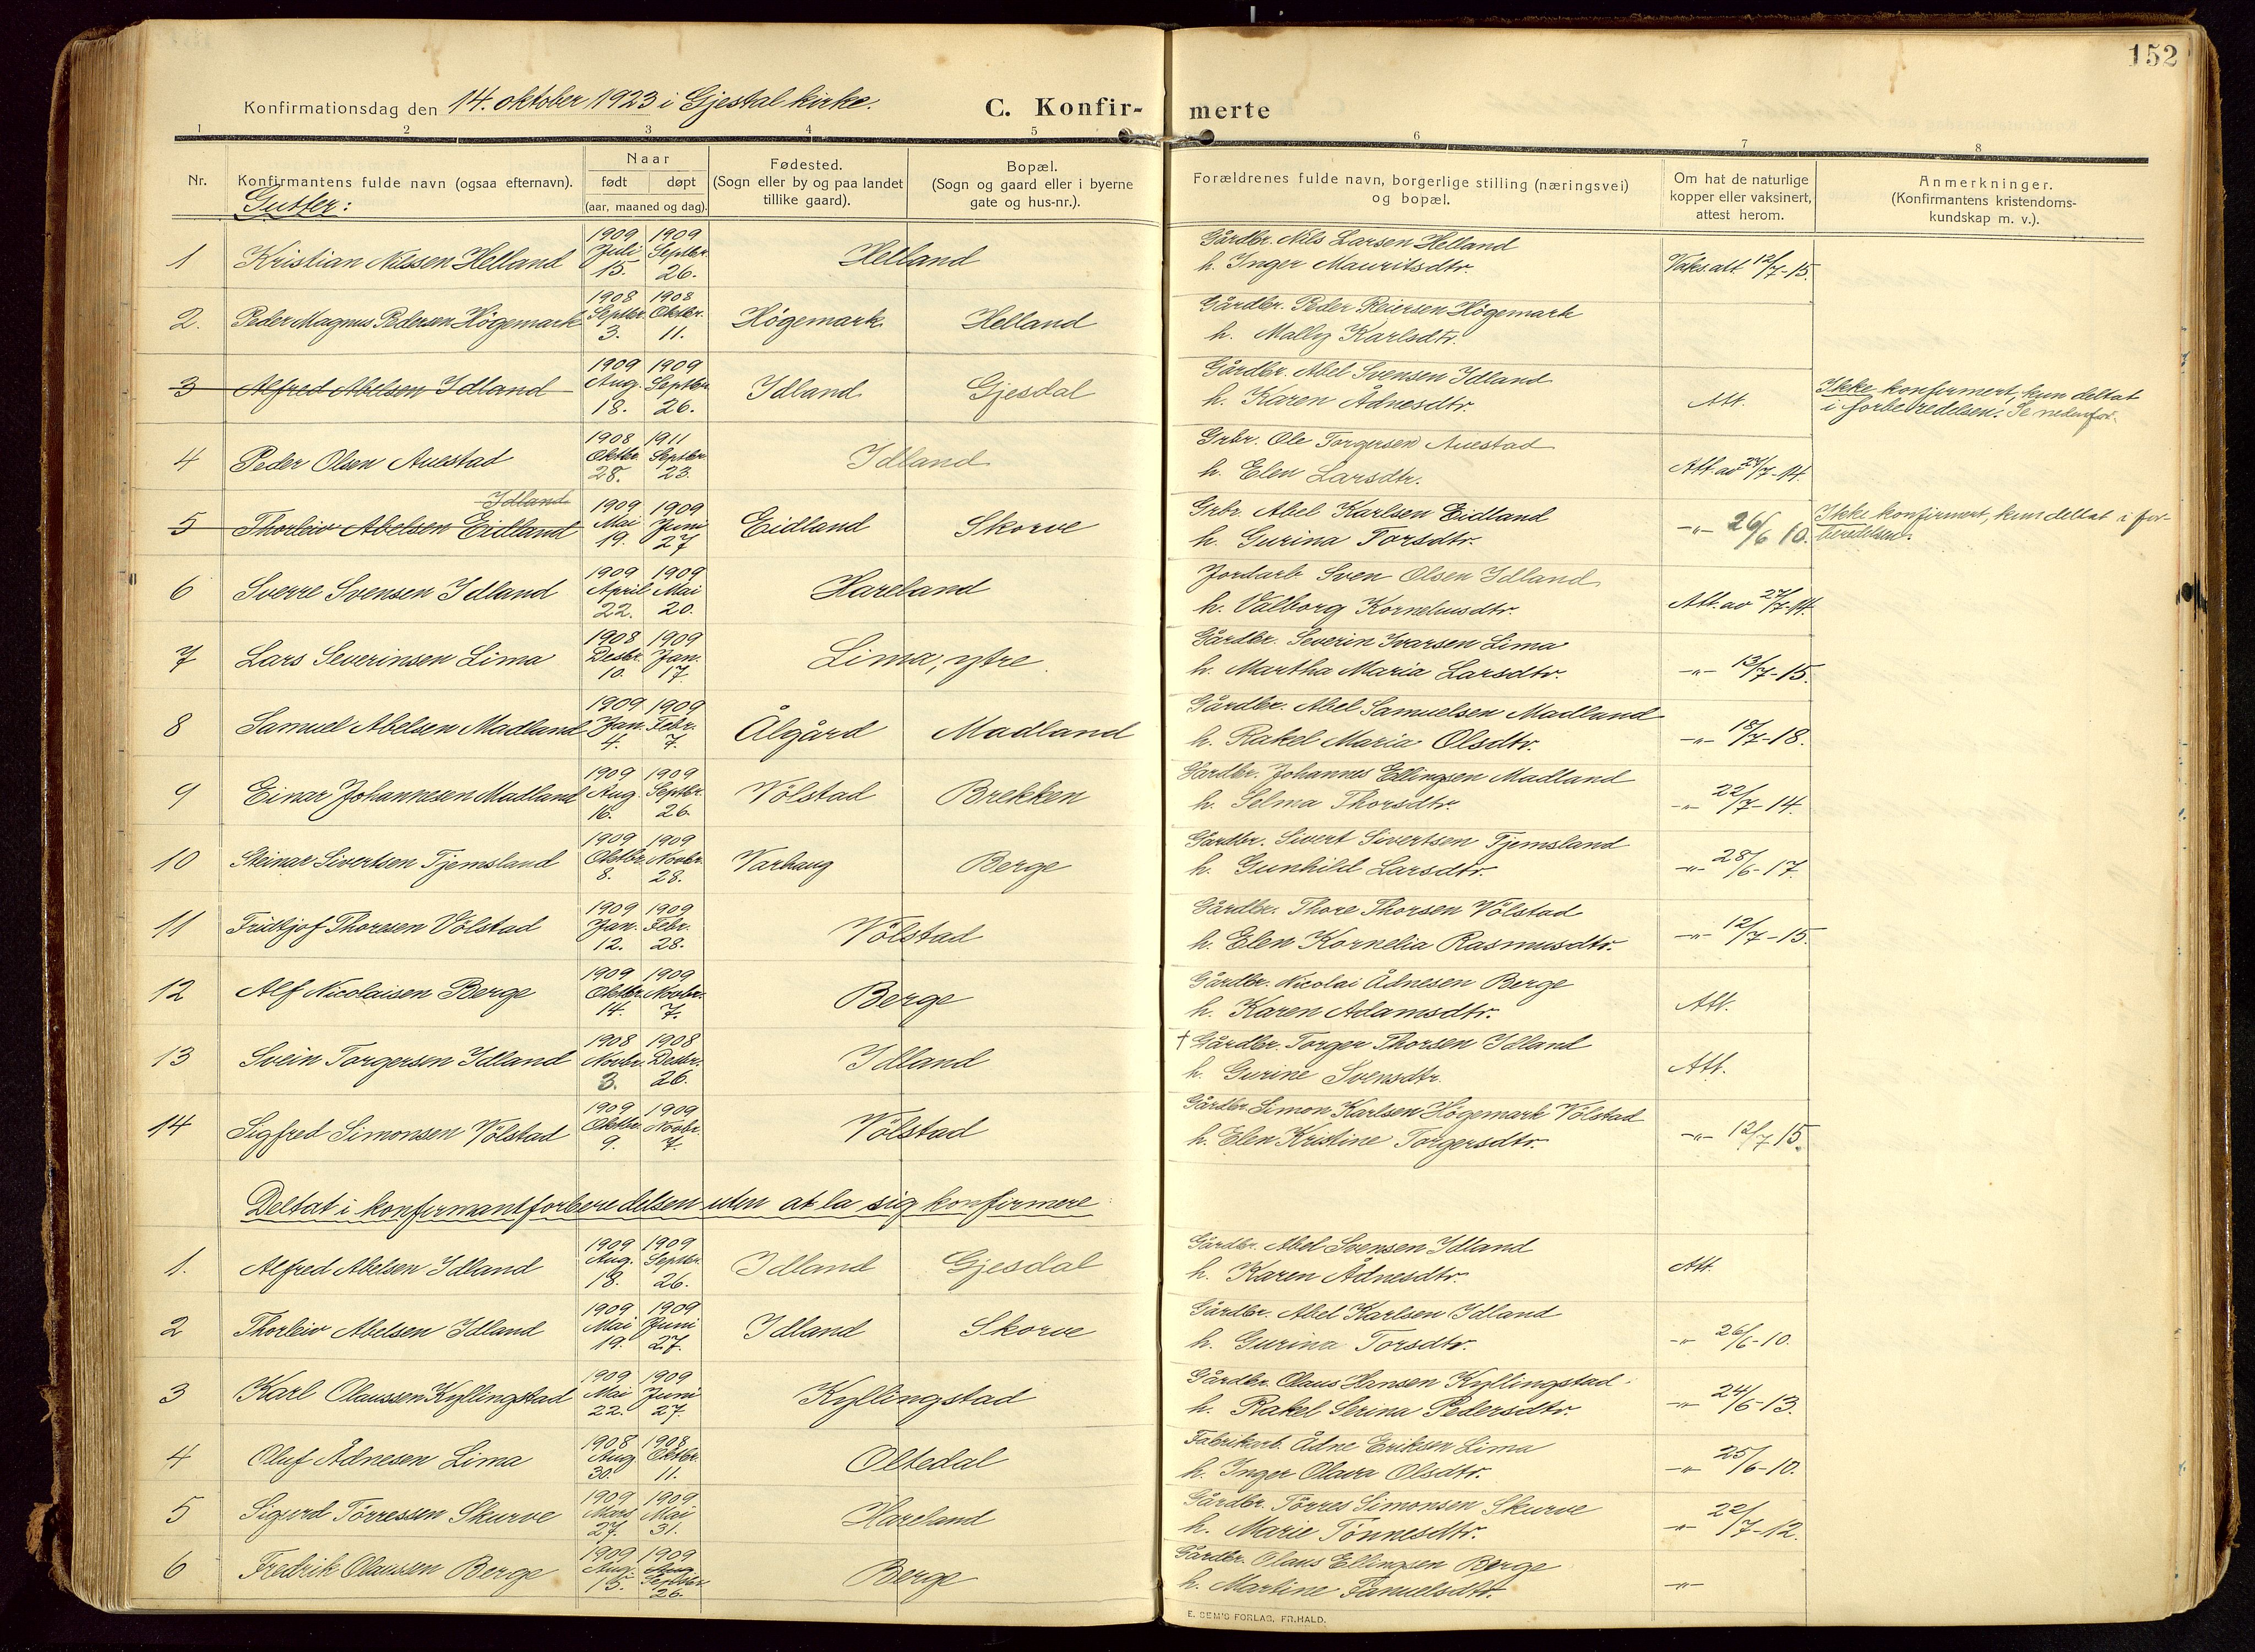 152
Konfirmationsdag den 14. oktober 1923 i Gjestal kirke. C. Konfir- merte
1 2 3 4 5 6 7 8
Nr. Konfirmantens fulde navn (ogsaa efternavn). Naar født døpt (aar, maaned og dag). Fødested. (Sogn eller by og paa landet tillike gaard). Bopæl. (Sogn og gaard eller i byerne gate og hus-nr.). Forældrenes fulde navn, borgerlige stilling (næringsvei) og bopæl. Om hat de naturlige kopper eller vaksinert, attest herom. Anmerkninger. (Konfirmantens kristendoms- kundskap m. v.).
Gutter:
1 Kristian Nilssen Helland 1909 Juli 15. 1909 Septbr. 26. Helland Gårdbr. Nils Larsen Helland
h. Inger Mauritsdtr. Vaks.att 12/7-15.
2. Peder Magnus Pedersen Högemark 1908 Septbr. 3. 1908 Oktbr. 11. Högemark Helland Gårdbr. Peder Reiersen Högemark
h. Mally Karlsdtr.
3 Alfred Abelsen Idland 1909 Aug. 18. 1909 Septbr. 26. Idland Gjesdal Gårdbr. Abel Svensen Idland
h. Karen Ådnesdtr. Att. Ikke konfirmert, kun deltat
i forberedelsen. Se nedenfor.
4 Peder Olsen Auestad 1908 Oktbr. 28. 1911 Septbr. 23. Idland Grbr. Ole Torgersen Auestad
h. Elen Larsdtr. Att. av 27/7-14.
Idland
5 Thorleiv Abelsen Eidland 1909 Mai 19. 1909 Juni 27 Eidland Skorve Grbr. Abel Karlsen Eidland
h. Gurina Torsdtr. -"- 26/6 10. Ikke konfirmert, kun deltat i for-
beredelsen.
6 Sverre Svensen Idland 1909 April 22. 1909 Mai 20. Hareland Jordarb. Sven Olsen Idland
h. Valborg Korneliusdtr. Att. av 27/7-14.
7 Lars Severinsen Lima 1908 Desbr. 10. 1909 Jan. 17. Lima, ytre. Gårdbr. Severin Ivarsen Lima
h. Martha Maria Larsdtr. -"- 13/7-15.
8 Samuel Abelsen Madland 1909 Jan. 4. 1909 Febr. 7. Ålgård Madland Gårdbr. Abel Samuelsen Madland
h. Rakel Maria Olsdtr. -"- 18/7-18.
9 Einar Johannesen Madland 1909 Aug. 16. 1909 Septbr. 26. Völstad Brekken Gårdbr. Johannes Ellingsen Madland
h. Selma Thorsdtr. -"- 22/7-14.
10 Steinar Sivertsen Tjemsland 1909 Oktbr. 8. 1909 Novbr. 28. Varhaug Berge Gårdbr. Sivert Sivertsen Tjemsland
h. Gunhild Larsdtr. -"- 28/6-17.
11 Fridtjof Thoresen Völstad 1909 Jan. 12. 1909 Febr. 28. Völstad Gårdbr. Thore Thorsen Völstad
h. Elen Kornelia Rasmusdtr. -"- 12/7-15.
12 Alf Nicolaisen Berge 1909 Oktbr. 14. 1909 Novbr. 7. Berge Gårdbr. Nicolai Ådnesen Berge
h. Karen Adamsdtr. Att.
13 Svein Torgersen Idland 1908 Novbr. 3. 1908 Desbr. 26. Idland † Gårdbr. Torger Thorsen Idland
h. Gurine Svensdtr. Att.
14 Sigfred Simonsen Völstad 1909 Oktbr. 9. 1909 Novbr. 7. Völstad Gårdbr. Simon Karlsen Högemark Völstad
h. Elen Kristine Torgersdtr. -"- 12/7 15.
Deltat i konfirmantforberedelsen uten at la sig konfirmere
1. Alfred Abelsen Idland 1909 Aug. 18. 1909 Septbr. 26. Idland Gjesdal Gårdbr. Abel Svensen Idland
h. Karen Ådnesdtr. Att.
2 Thorleiv Abelsen Idland 1909 Mai 19. 1909 Juni 27. Idland Skorve Gårdbr. Abel Karlsen Idland
h. Gurina Torsdtr. -"- 26/6-10.
3 Karl Olaussen Kyllingstad 1909 Mai 22. 1909 Juni 27. Kyllingstad Gårdbr. Olaus Hansen Kyllingstad
h. Rakel Serina Pedersdtr. -"- 24/6-13.
4 Oluf Ådnesen Lima 1908 Aug. 30. 1908 Oktbr. 11. Oltedal Fabrikarb. Ådne Eriksen Lima
h. Inger Olava Olsdtr. -"- 25/6-10.
5 Sigurd Törressen Skurve 1909 Mars 27. 1909 Mai 31. Hareland Gårdbr. Törres Simonsen Skurve
h. Marie Tönnesdtr. -"- 22/7-12.
6 Fredrik Olaussen Berge 1909 Aug. 15. 1909 Aug. Septbr. 26. Berge Gårdbr. Olaus Ellingsen Berge
h. Martine Samuelsdtr. -"-
E. SEM'S FORLAG, FR.HALD.